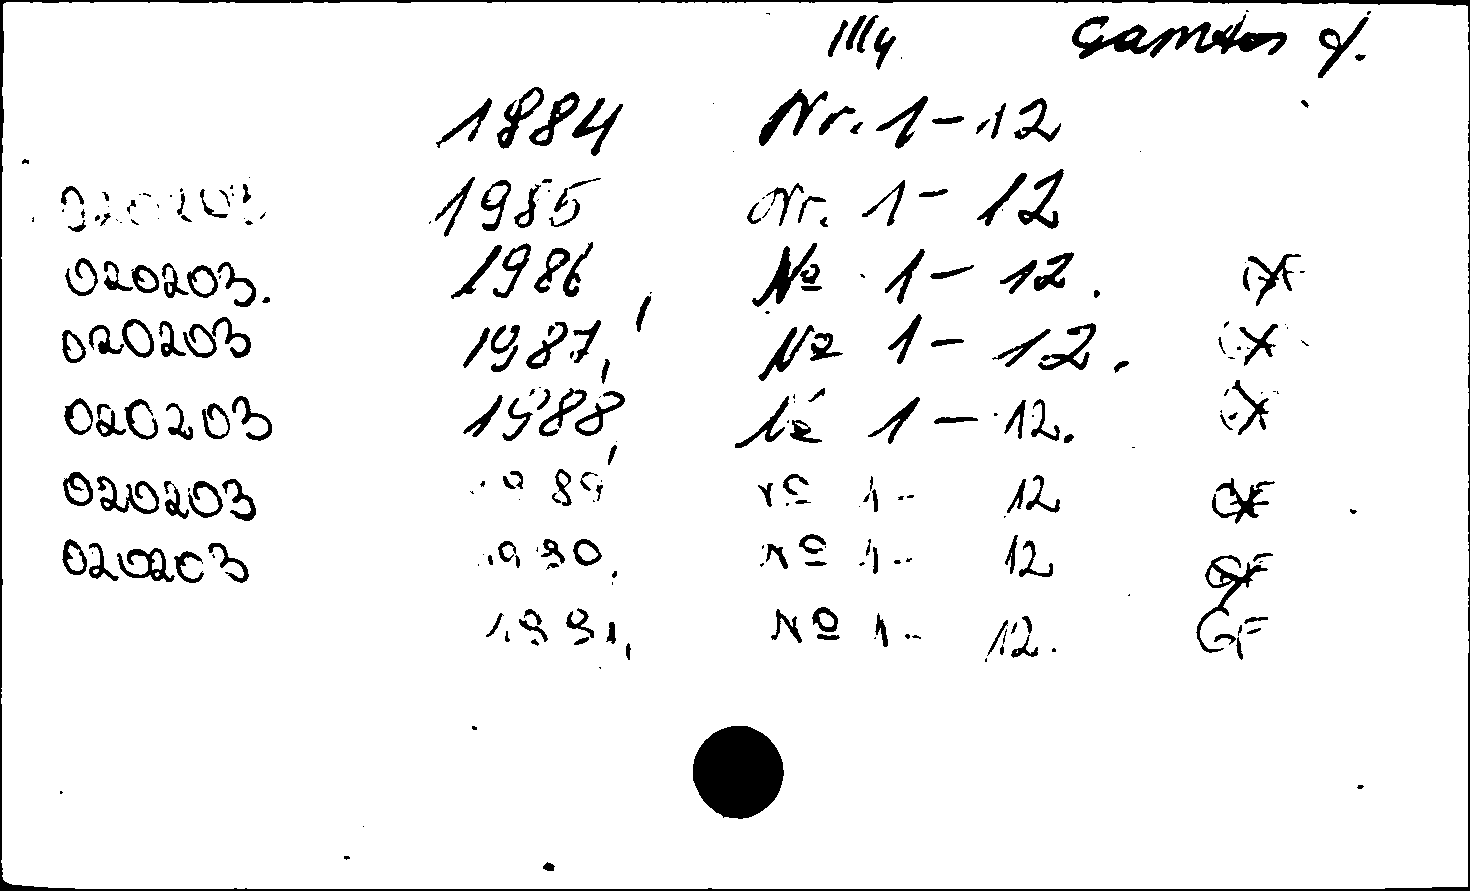 IIIy Gamtos f.
1884 Nr. 1-12
020203 1985 Nr. 1-12
020203. 1986, № 1-12. GF
020203 1987, № 1-12.
020203 1988, № 1-12.
020203 1989 № 1-12 GF
020203 1990. № 1-12 GF
1991, № 1-12. GF